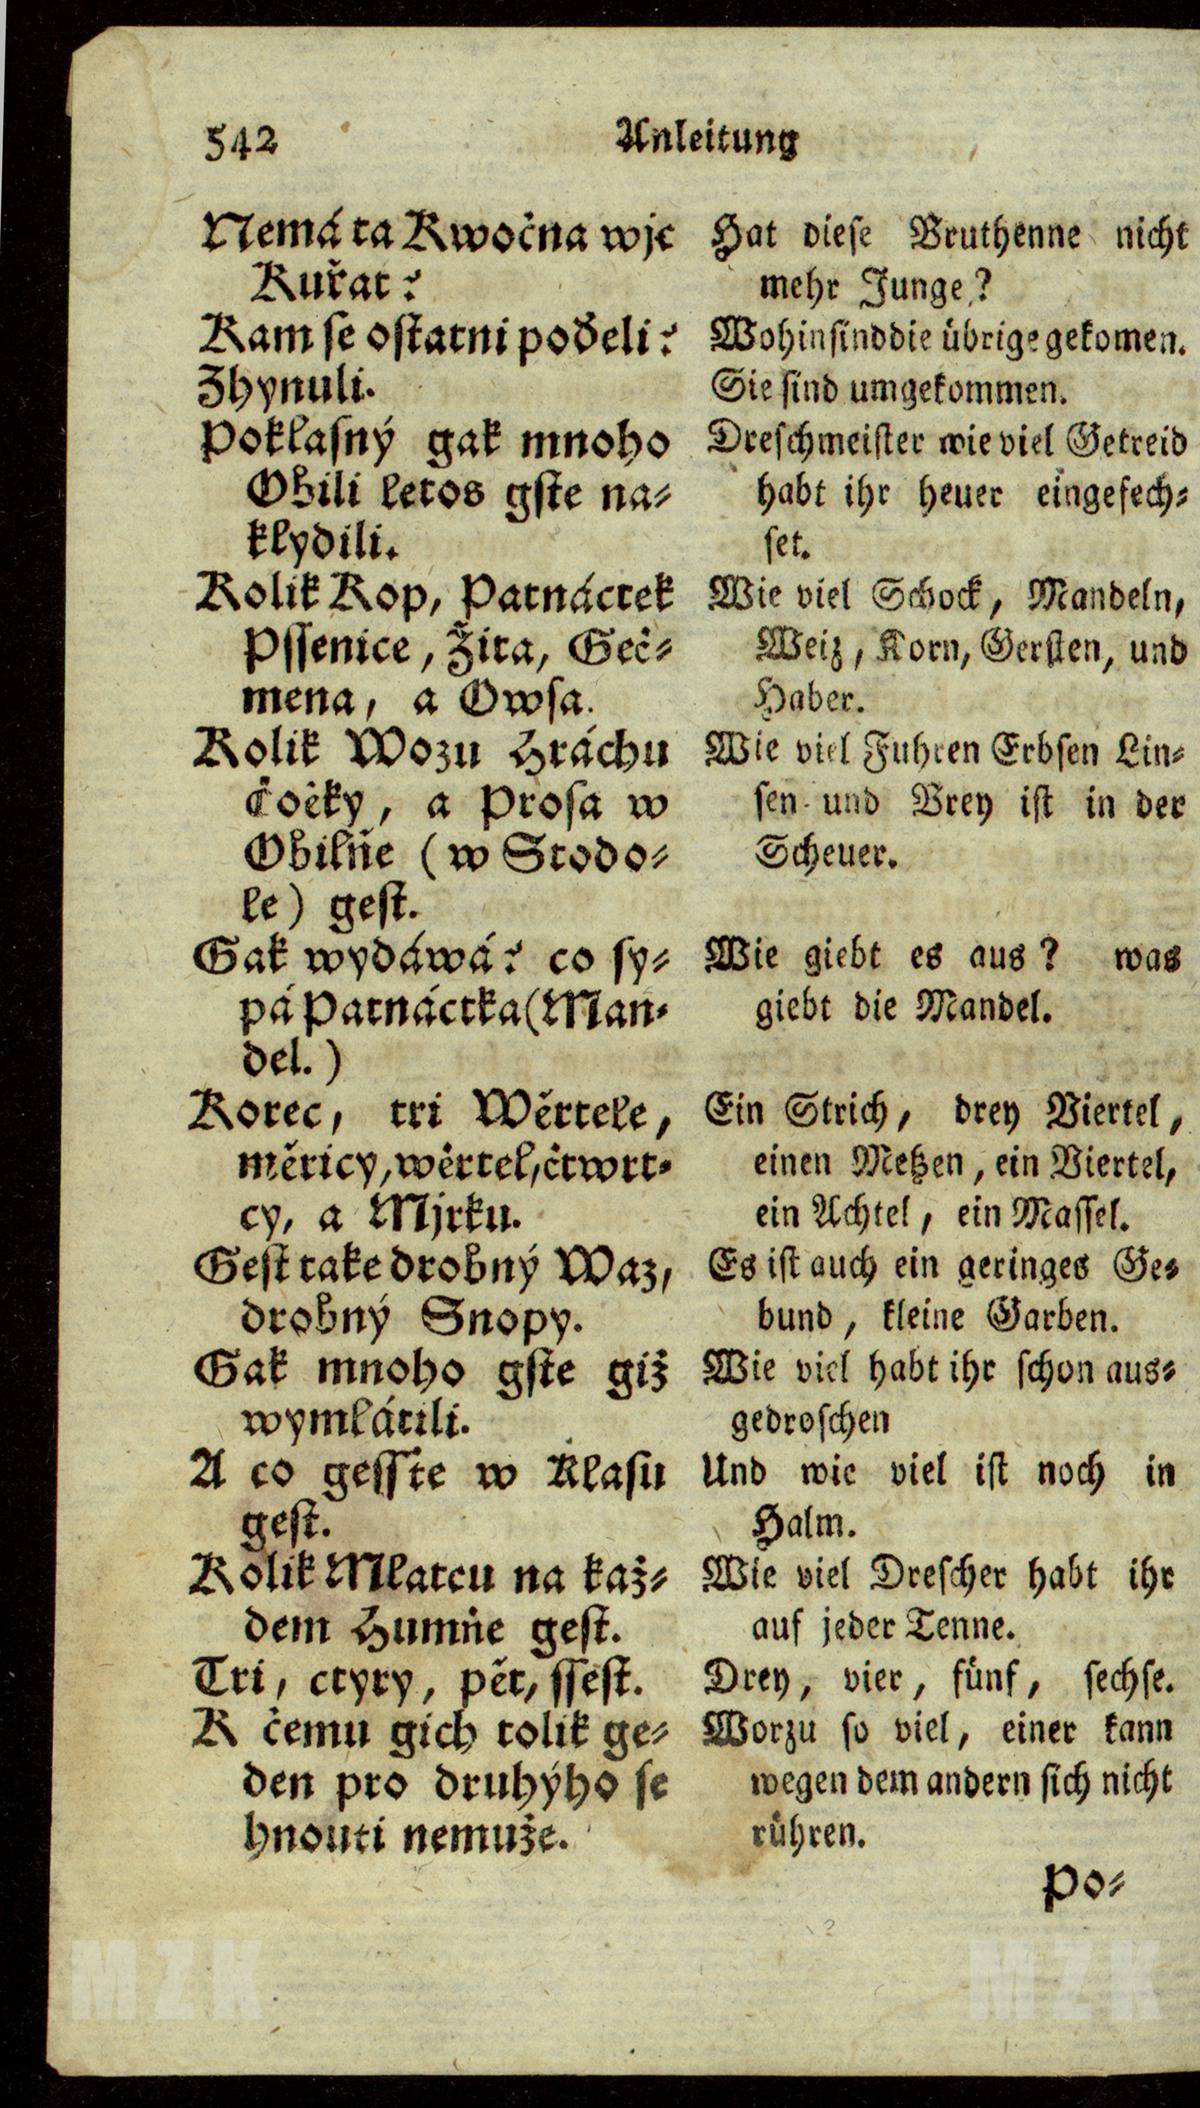 542
Anleitung
Nemá ta Kwočna wjc
Kuřat?
Kam se ostatni poďeli?
Zhynuli.
Poklasný gak mnoho
Obili letos gste na-
klydili.
Kolik Kop, Patnáctek
Pssenice, Žita, Geč-
mena, a Owsa.
Kolik Wozu Hráchu
Čočky, a Prosa w
Obilňe (w Stodo-
le) gest.
Gak wydáwá? co sy-
pá Patnáctka (Man-
del.)
Korec, tri Wěrtele,
měricy, wěrtel, čtwrt-
cy, a Mjrku.
Gest take drobný Waz,
drobný Snopy.
Gak mnoho gste giž
wymlátili.
A co gesste w Klasu
gest.
Kolik Mlatcu na kaž-
dem Humňe gest.
Tri, ctyry, pět, ssest.
K čemu gich tolik ge-
den pro druhýho se
hnouti nemuže.
Hat diese Bruthenne nicht
mehr Junge?
Wohin sind die übrige gekomen.
Sie sind umgekommen.
Dreschmeister wie viel Getreid
habt ihr heuer eingefech-
set.
Wie viel Schock, Mandeln,
Weiz, Korn, Gersten, und
Haber.
Wie viel Fuhren Erbsen Lin-
sen und Brey ist in der
Scheuer.
Wie giebt es aus? was
giebt die Mandel.
Ein Strich, drey Viertel,
einen Metzen, ein Viertel,
ein Achtel, ein Massel.
Es ist auch ein geringes Ge-
bund, kleine Garben.
Wie viel habt ihr schon aus-
gedroschen
Und wie viel ist noch in
Halm.
Wie viel Drescher habt ihr
auf jeder Tenne.
Drey, vier, fünf, sechse.
Worzu so viel, einer kann
wegen dem andern sich nicht
rühren.
Po-
MZK
MZK